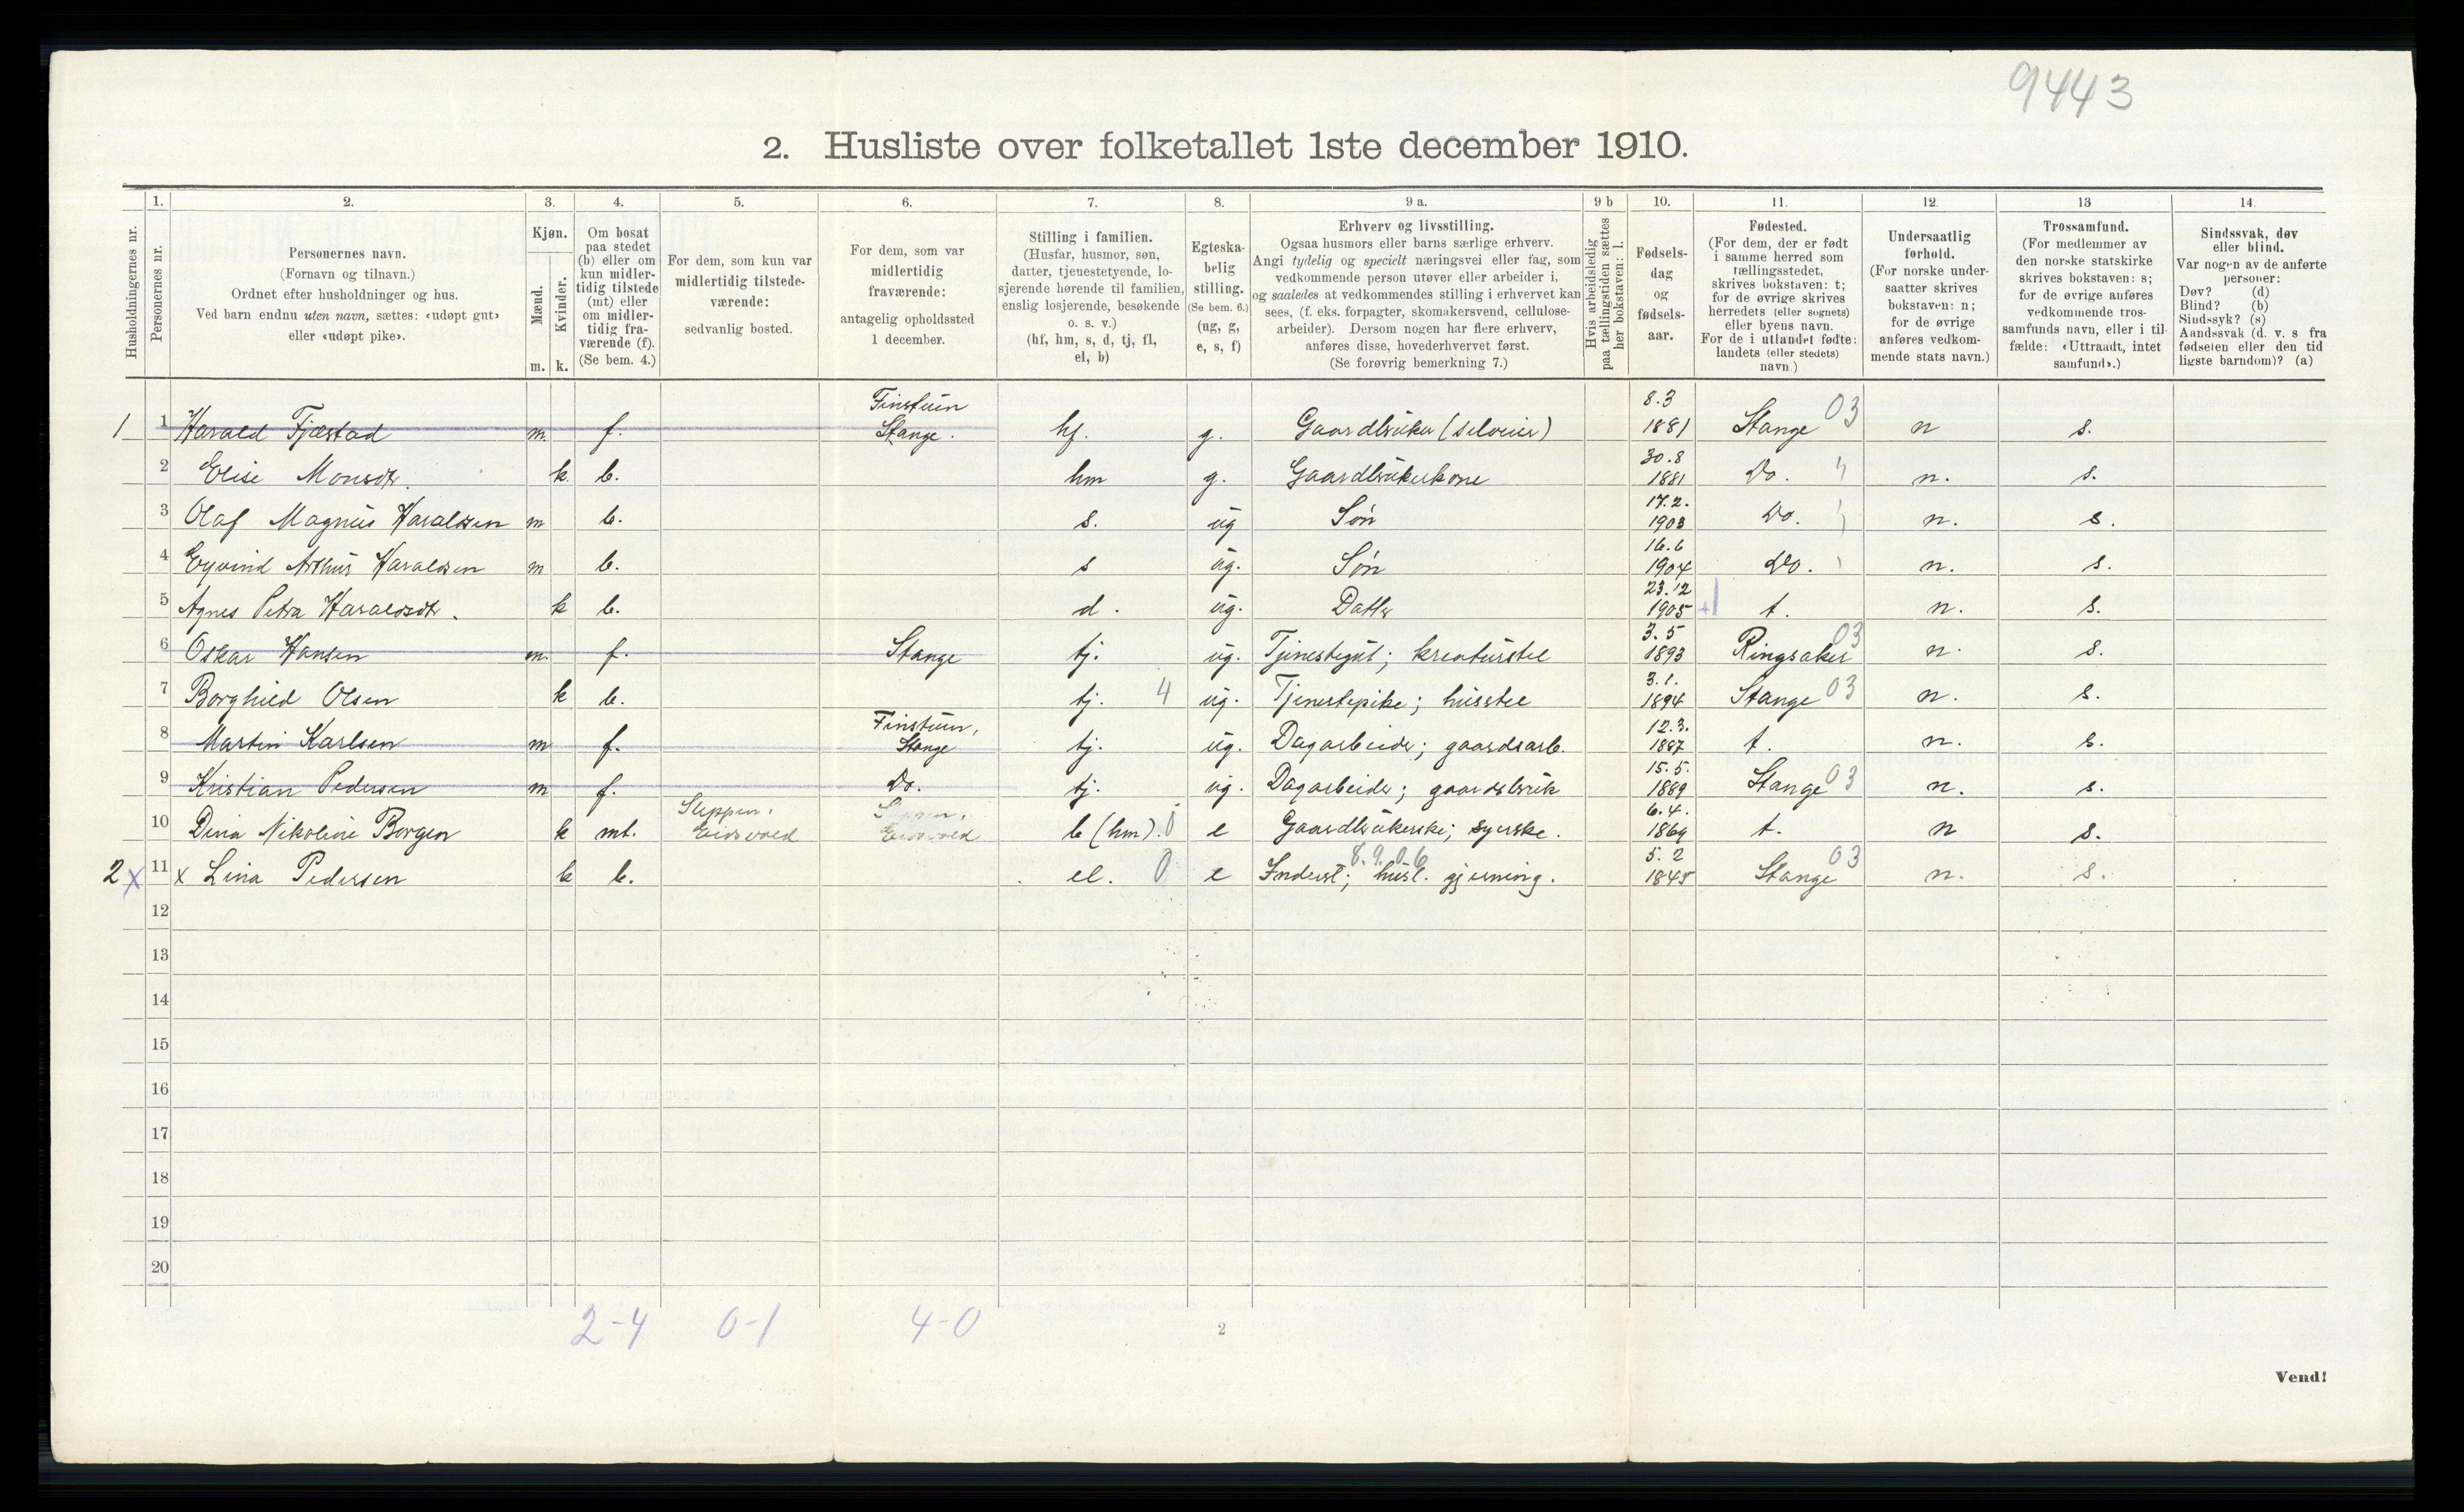 9443
2. Husliste over folketallet 1ste december 1910.
1. 2. 3. 4. 5. 6. 7. 8. 9 a. 9 b 10. 11. 12. 13 14.
Husholdningernes nr.
Personernes nr.
Personernes navn.
(Fornavn og tilnavn.)
Ordnet efter husholdninger og hus.
Ved barn endnu uten navn, sættes: «udøpt gut»
eller «udøpt pike».
Kjøn.
Mænd.
Kvinder.
m. k.
Om bosat
paa stedet
(b) eller om
kun midler-
tidig tilstede
(mt) eller
om midler-
tidig fra-
værende (f).
(Se bem. 4.)
For dem, som kun var
midlertidig tilstede-
værende:
sedvanlig bosted.
For dem, som var
midlertidig
fraværende:
antagelig opholdssted
1 december.
Stilling i familien.
(Husfar, husmor, søn,
datter, tjenestetyende, lo-
sjerende hørende til familien,
enslig losjerende, besøkende
o. s. v.)
(hf, hm, s, d, tj, fl,
el, b)
Egteska-
belig
stilling.
(Se bem. 6.)
(ug, g,
e, s, f)
Erhverv og livsstilling.
Ogsaa husmors eller barns særlige erhverv.
Angi tydelig og specielt næringsvei eller fag, som
vedkommende person utøver eller arbeider i,
og saaledes at vedkommendes stilling i erhvervet kan
sees, (f. eks. forpagter, skomakersvend, cellulose-
arbeider). Dersom nogen har flere erhverv,
anføres disse, hovederhvervet først.
(Se forøvrig bemerkning 7.)
Hvis arbeidsledig
paa tællingstiden sættes
her bokstaven: l.
Fødsels-
dag
og
fødsels-
aar.
Fødested.
(For dem, der er født
i samme herred som
tællingsstedet,
skrives bokstaven: t;
for de øvrige skrives
herredets (eller sognets)
eller byens navn.
For de i utlandet fødte:
landets (eller stedets)
navn.)
Undersaatlig
forhold.
(For norske under-
saatter skrives
bokstaven: n;
for de øvrige
anføres vedkom-
mende stats navn.)
Trossamfund.
(For medlemmer av
den norske statskirke
skrives bokstaven: s;
for de øvrige anføres
vedkommende tros-
samfunds navn, eller i til-
fælde: «Uttraadt, intet
samfund».)
Sindssvak, døv
eller blind.
Var nogen av de anførte
personer:
Døv? (d)
Blind? (b)
Sindssyk? (s)
Aandssvak (d. v. s. fra
fødselen eller den tid
ligste barndom)? (a)
1 1 Harald Fjæstad m. f. Finstuen Stange. hf. g. Gaardbruker (selveier) 8.3 1881 Stange 03 n s.
2 Elise Monsdtr. k. b. hm g. Gaardbrukerkone 30.8 1881 Do. n. s.
3 Olaf Magnus Haraldsen m b. s. ug Søn 17.2. 1903 Do. n. s.
4 Eyvind Arthur Haraldsen m b. s ug. Søn 16.6 1904 Do. n. s.
5 Agnes Petra Haraldsdtr. k b. d. ug. Datter 23.12 1905 +1 t. n. s.
6 Oskar Hansen m. f. Stange tj. ug. Tjenestegut; kreaturstel 3.5 1893 Ringsaker 03 n. s.
7 Borghild Olsen k b. tj. 4 ug. Tjenestepike; husstel 3.1. 1894 Stange 03 n. s.
8 Martin Karlsen m f. Finstuen, Stange tj. ug. Dagarbeider; gaardsarb. 12.3. 1887 t. n. s.
9 Kristian Pedersen m f. Do. tj. ug. Dagarbeider; gaardsbruk 15.5. 1889 Stange 03 n. s.
10 Dina Nikoline Borgen k mt. Sleppen, Eidsvold Eidsvold b (hm). 0 e Gaardbrukerske; syerske. 6.4. 1869 t. n s.
2 x 11 x Lina Pedersen k b. el. 0 e Inderst; husl. gjerning. 8.9.0.6 5.2 1845 Stange 03 n. s.
12
13
14
15
16
17
18
19
20
2-4 0-1 4-0
2
Vend!